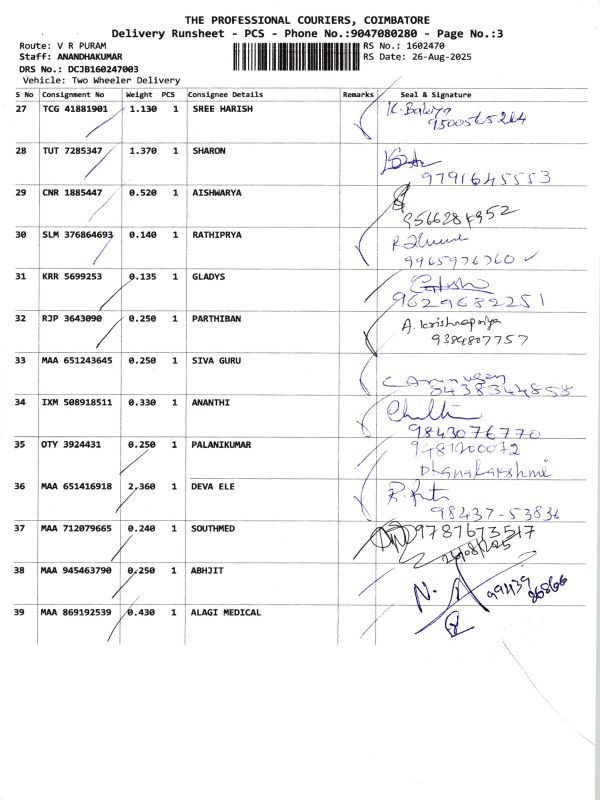 THE PROFESSIONAL COURIERS, COIMBATORE
Delivery Runsheet - PCS - Phone No.:9047080280 - Page No.:3
Route: V R PURAM
RS No.: 1602470
Staff: ANANDHAKUMAR
RS Date: 26-Aug-2025
DRS No.: DCJB160247003
Vehicle: Two Wheeler Delivery
S No Consignment No Weight PCS Consignee Details Remarks Seal & Signature
27 TCG 41881901 1.130 1 SREE HARISH
28 TUT 7285347 1.370 1 SHARON
9791645553
29 CNR 1885447 0.520 1 AISHWARYA
9566284952
30 SLM 376864693 0.140 1 RATHIPRYA
9965976760
31 KRR 5699253 0.135 1 GLADYS
9629682251
32 RJP 3643090 0.250 1 PARTHIBAN
A. krishnapriya
9384807757
33 MAA 651243645 0.250 1 SIVA GURU
8438344858
34 IXM 508918511 0.330 1 ANANTHI
9843076770
35 OTY 3924431 0.250 1 PALANIKUMAR
Dhanalakshmi
36 MAA 651416918 2.360 1 DEVA ELE
98437-53836
37 MAA 712079665 0.240 1 SOUTHMED
9787673517
26/08/2025
38 MAA 945463790 0.250 1 ABHJIT
39 MAA 869192539 0.430 1 ALAGI MEDICAL